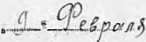 „9“ Февраля